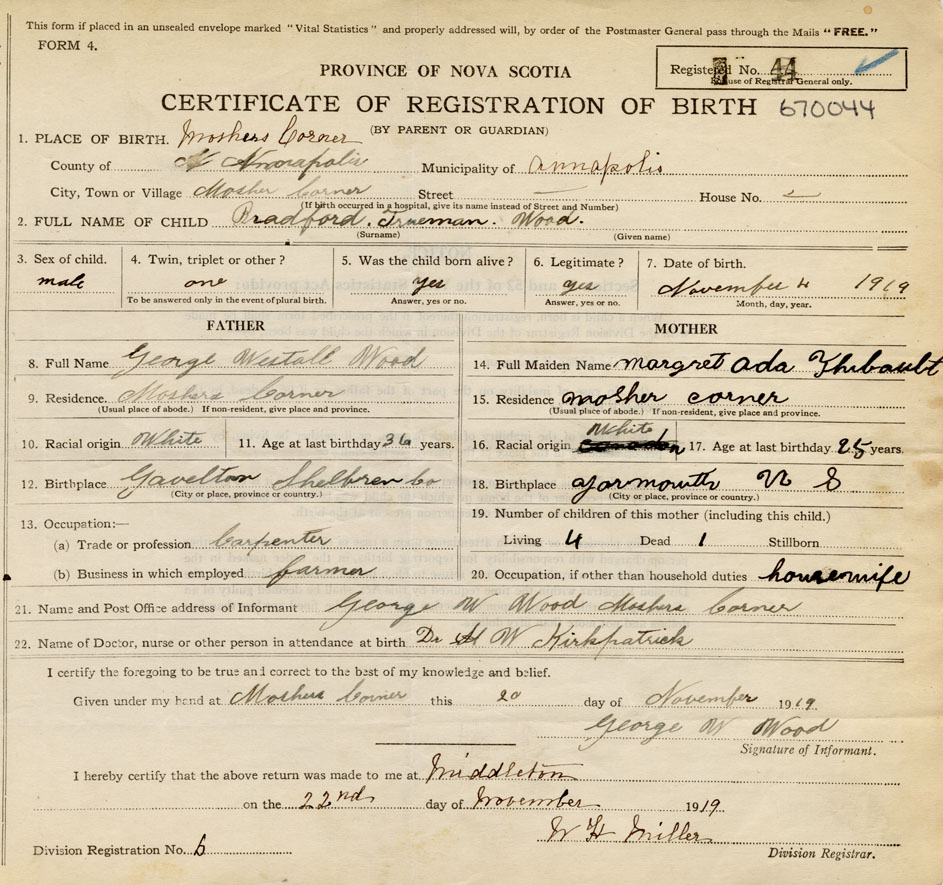 This form if placed in an unsealed envelope marked "Vital Statistics" and properly addressed will, by order of the Postmaster General pass through the Mails "FREE."
FORM 4.
Registered No. 44
House of Registrar General only.
PROVINCE OF NOVA SCOTIA
CERTIFICATE OF REGISTRATION OF BIRTH 670044
(BY PARENT OR GUARDIAN)
1. PLACE OF BIRTH. Moshers Corner
County of Annapolis Municipality of Annapolis
City, Town or Village Mosher Corner Street — House No. —
(If birth occurred in a hospital, give its name instead of Street and Number)
2. FULL NAME OF CHILD Bradford. Trueman. Wood.
(Surname) (Given name)
3. Sex of child. 4. Twin, triplet or other? 5. Was the child born alive? 6. Legitimate? 7. Date of birth.
male one yes yes November 4 1919
To be answered only in the event of plural birth. Answer, yes or no. Answer, yes or no. Month, day, year.
FATHER
8. Full Name George Westall Wood
9. Residence. Moshers Corner
(Usual place of abode.) If non-resident, give place and province.
10. Racial origin White 11. Age at last birthday 36 years.
12. Birthplace Shelbren Co
(City or place, province or country.)
13. Occupation:—
(a) Trade or profession Carpenter
(b) Business in which employed farmer
MOTHER
14. Full Maiden Name margret ada Thibault
15. Residence mosher corner
(Usual place of abode.) If non-resident, give place and province.
White
16. Racial origin 17. Age at last birthday 25 years.
18. Birthplace yormouth N S
(City or place, province or country.)
19. Number of children of this mother (including this child.)
Living 4 Dead 1 Stillborn
20. Occupation, if other than household duties housewife
21. Name and Post Office address of Informant George W Wood Moshers Corner
22. Name of Doctor, nurse or other person in attendance at birth Dr W Kirkpatrick
I certify the foregoing to be true and correct to the best of my knowledge and belief.
Given under my hand at Moshers Corner this 20 day of November 1919.
George W Wood
Signature of Informant.
I hereby certify that the above return was made to me at Middleton
on the 22nd day of November 1919.
W H Miller
Division Registration No. 6 Division Registrar.